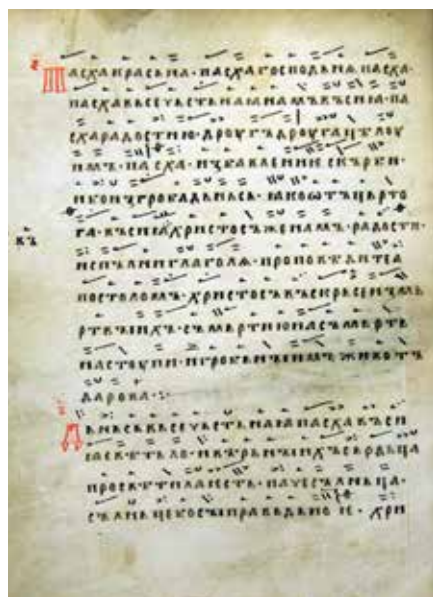 ПАСХАКРАСЬНА·ПАСХАГОСПОДЬНѦ·ПАСХА·
ПАСХАВЬСЕЧЬСТЬНАꙖНАМЪВЪСИꙖ·ПА
СХАРАДОСТИЮ·ДРОУГЪДРОУГАЦѢЛОУ
ИМЪ·ПАСХА·ИЗБАВЛЕНИѤСКЪРБИ·
ИБОИЗГРОБАДЬНЬСЬ·ꙖКООТЪЧЬРТО
ГА·ВЪСИꙖХРИСТОСЪЖЕНАМЪ·РАДОСТИ·
ИСПЪЛНИГЛАГОЛѦ·ПРОПОВѢДИТЕА
ПОСТОЛОМЪ·ХРИСТОСЪВЪСКРЬСЕИЗМЬ
РТВЫИХЪ·СЪМЬРТИЮНАСЪМЬРТЬ
НАСТОУПИ·ИГРОБЬНЫИМЪЖИВОТЪ
ДАРОВА·:·
ДЬНЬСЬВЬСЕЧЬСТЬНАꙖПАСХАВЪСИ
ПРОСВѢТИЛАѤСТЬ·
СЪЛНЬЦЕ ПРАВЬДЬНОѤ·ХРИ